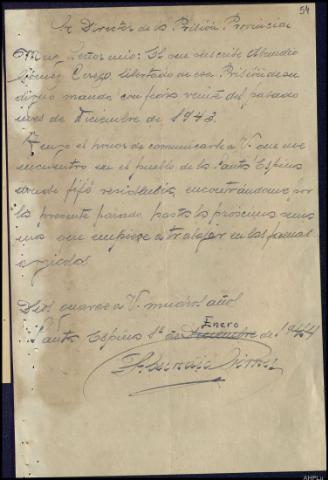 54
Sr Director de la Prisión Provincial
Muy Señor mio: El que suscribe
Gómez libertado de esa Prisión de su
digno mando con fecha veinte del pasado
mes de Diciembre de 1943.
Tengo el honor de comunicarle a V. que me
encuentro en el pueblo de la Santa Espina
donde fijé residencia, encontrándome por
la presente parado hasta la próxima
que empiece a trabajar en las faenas
agricolas
Dios guarde a V. muchos años
Santa Espina 1º de Diciembre de 1944
Enero
Gómez
AHPLu